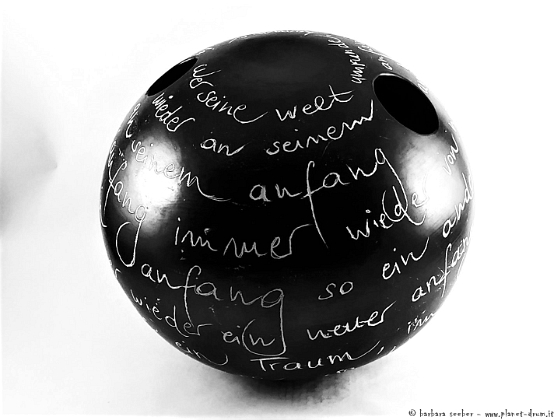 wer seine welt
wieder an seinem
seinem anfang
anfang immer wieder von
anfang so ein
wieder ei(n) neuer anfan
ein Traum
© barbara seeber - www.planet-drum.it